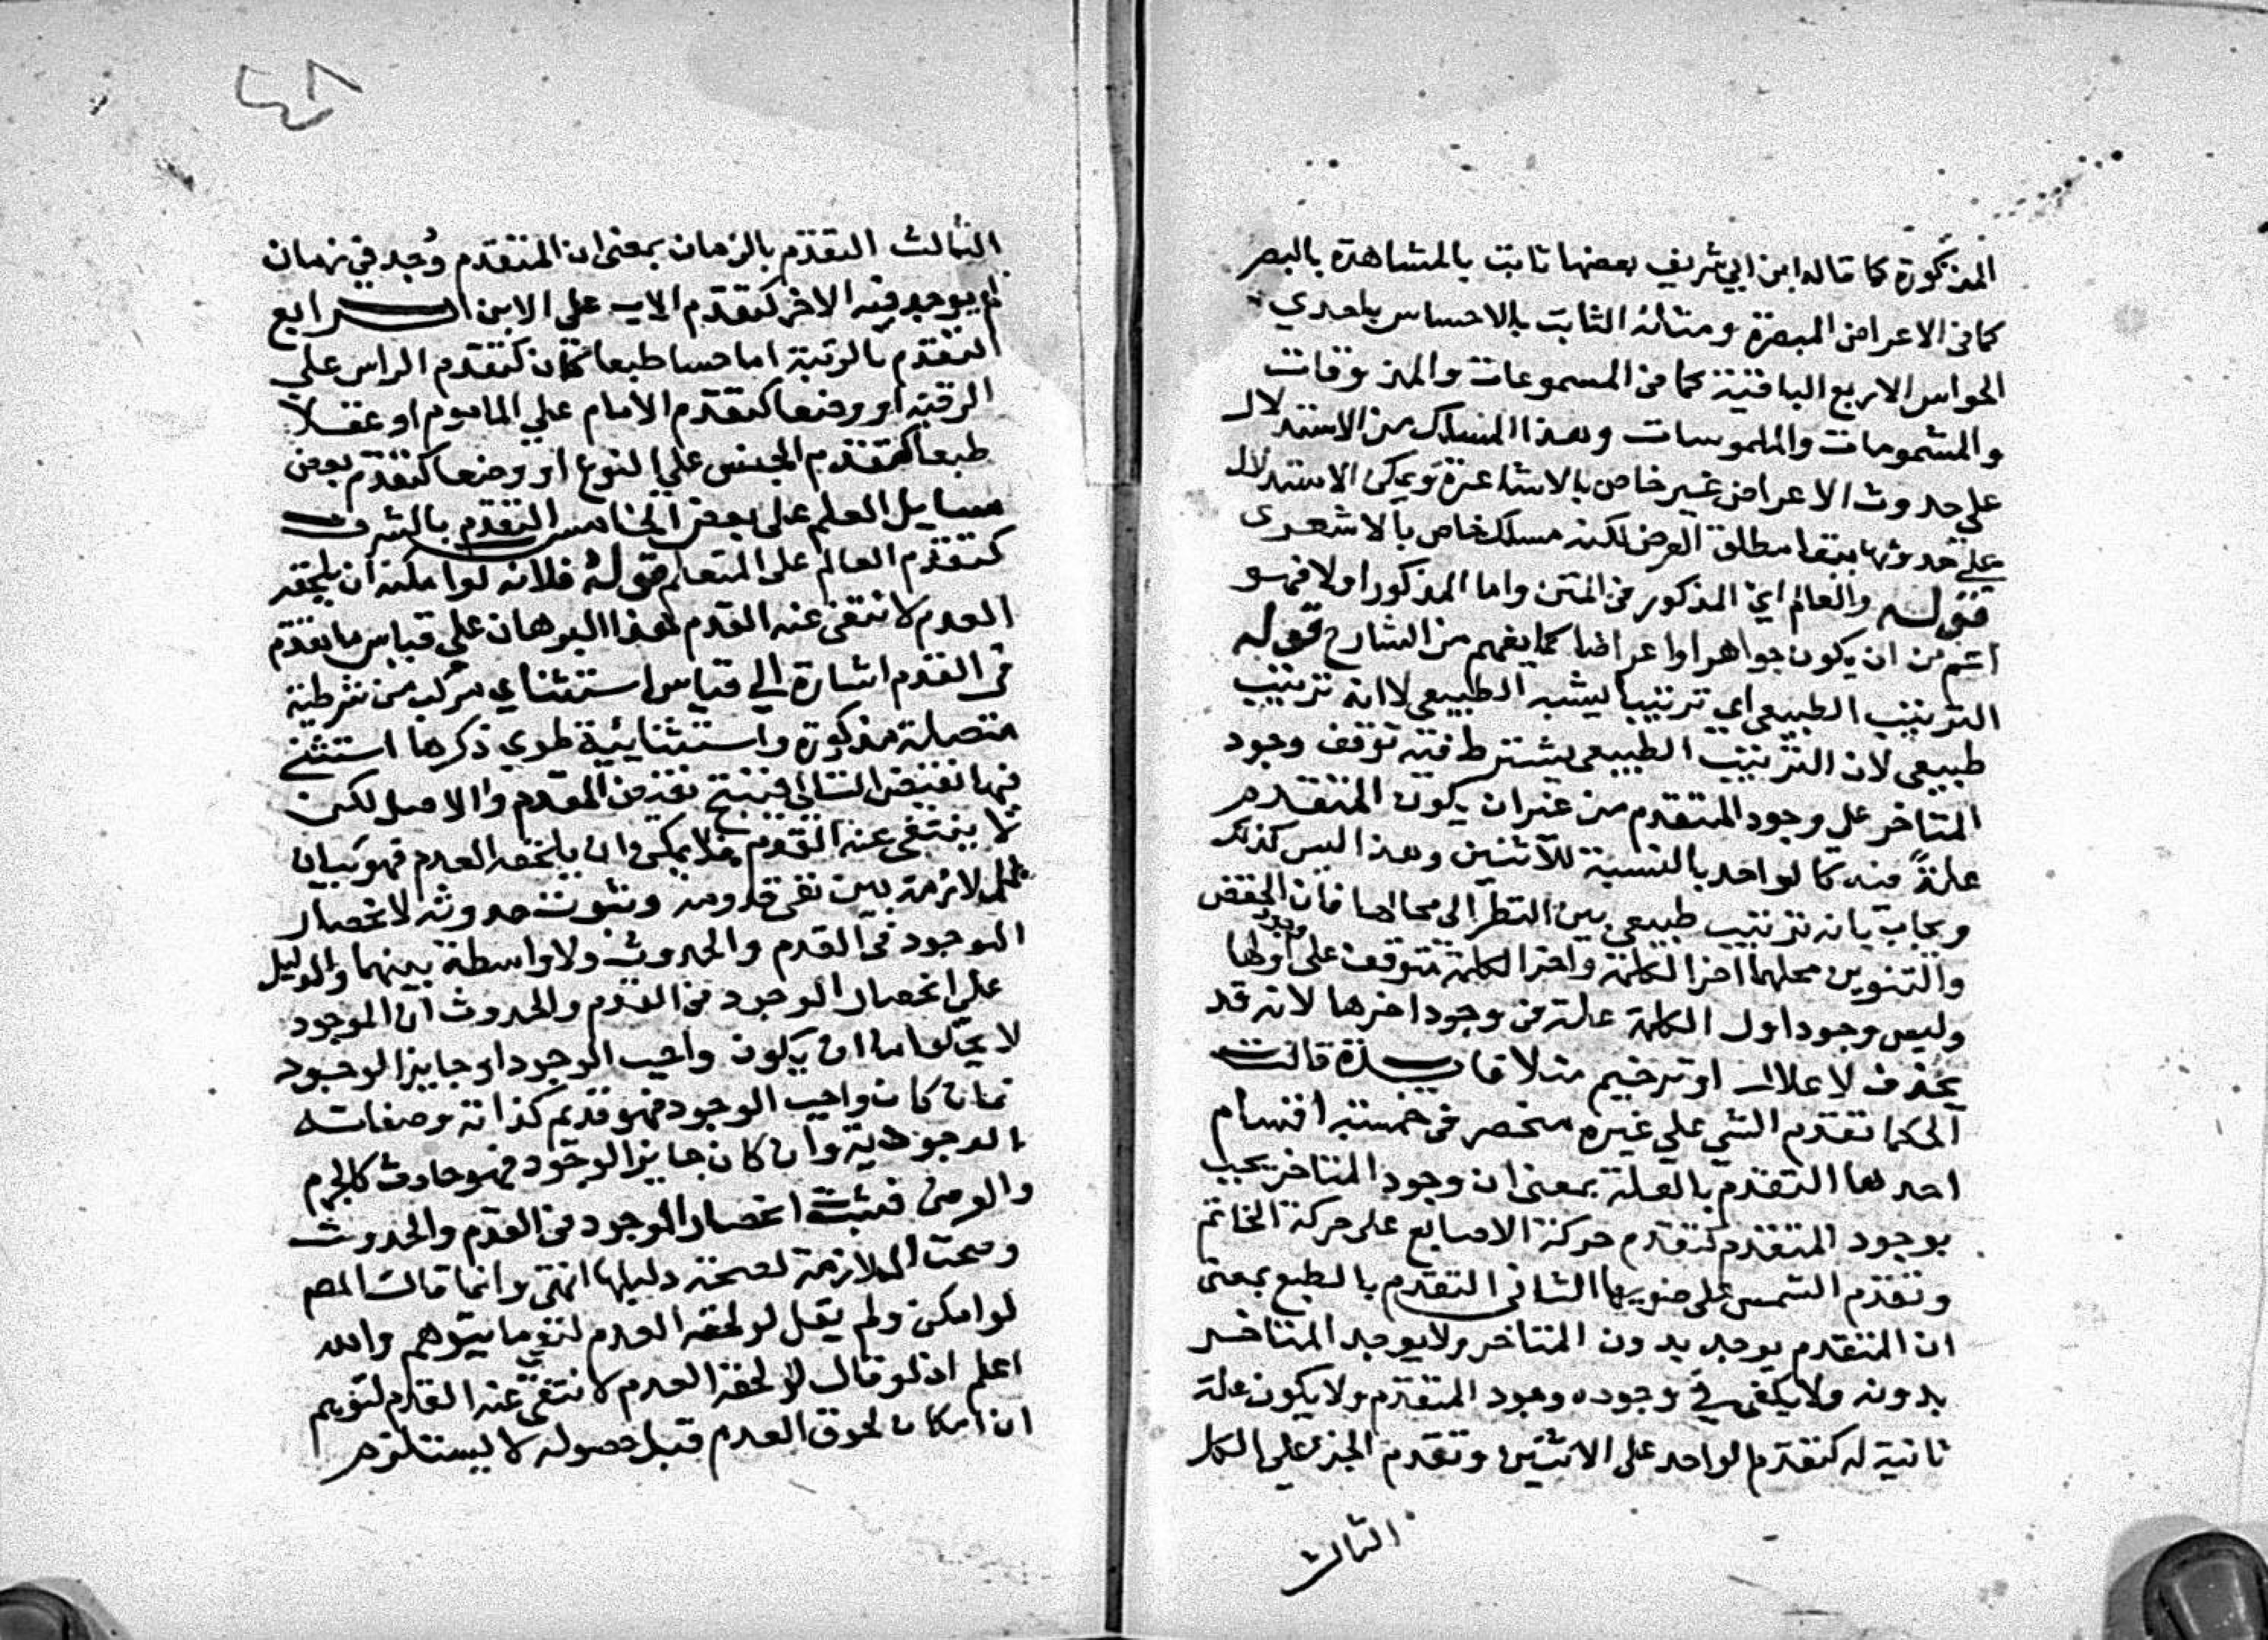 المذكورة كما قاله ابن ابي شريف بعضها ثابت بالمشاهدة بالبصر
كما في الاعراض المبصرة ومنها ثابت بالاحساس باحدي
الحواس الاربع الباقية كما في المسموعات والمذوقات
والمشمومات والملموسات وهذا المسلك من الاستدلال
علي حدوث الاعراض غير خاص بالاشاعرة ويمكن الاستدلال
علي حدوثها ببقا مطلق العرض لكنه مسلك خاص بالاشعري
قوله والعالم اي المذكور في المتن واما المذكور اولا فهو
اعم من ان يكون جواهر او اعراضا كما يفهم من الشارح قوله
الترتيب الطبيعي اي ترتيبا يشبه الطبيعي لا انه ترتيب
طبيعي لان الترتيب الطبيعي يشترط فيه توقف وجود
المتاخر علي وجود المتقدم من غير ان يكون المتقدم
علة فيه كالواحد بالنسبة للاثنين وهذا ليس كذلك
ويجاب بانه ترتيب طبيعي بين النظر الي محالها فان الخفض
والتنوين محلهما اخر الكلمة واخر الكلمة متوقف علي وجود اولها
وليس وجود اول الكلمة علة في وجود اخرها لانه قد
يحذف لاعلال او ترخيم مثلا فايدة قالت
الحكما تقدم الشي علي غيره منحصر في خمسة اقسام
احدها التقدم بالعلة بمعني ان وجود المتاخر يجب
بوجود المتقدم كتقدم حركة الاصابع على حركة الخاتم
وتقدم الشمس علي ضويها الثاني التقدم بالطبع بمعني
ان المتقدم يوجد بدون المتاخر ولا يوجد المتاخر
بدونه ولا يكفي في وجوده وجود المتقدم ولا يكون علة
ثانية له كتقدم الواحد على الاثنين وتقدم الجز علي الكل
الثالث
٤٨
الثالث التقدم بالزمان بمعني ان المتقدم وُجد في زمان
لم يوجد فيه الاخر كتقدم الاب علي الابن الرابع
التقدم بالرتبة اما حسا طبعا كان كتقدم الراس علي
الرقبة او وضعا كتقدم الامام علي الماموم او عقلا
طبعا كتقدم الجنس علي النوع او وضعا كتقدم بعض
مسايل العلم علي بعض الخامس التقدم بالشرف
كتقدم العالم علي المتعلم قوله فلانه لو امكن ان يلحقه
العدم لانتفى عنه القدم هذا البرهان علي قياس ما تقدم
في القدم اشارة الي قياس استثناي مركب من شرطية
متصلة مذكورة واستثنائية طوي ذكرها استثني
فيها نقيض التالي فينتج نقيض المقدم والاصل لكن
لا ينتفي عنه القدم فلا يمكن ان يلحقه العدم فهو بيان
للملازمة بين نفي قدومه وثبوت حدوثه لانحصار
الموجود في القدم والحدوث ولا واسطة بينهما والدليل
علي انحصار الموجود في القدم والحدوث ان الموجود
لا يخلوا اما ان يكون واجب الوجود او جايز الوجود
فان كان واجب الوجود فهو قديم كذاته وصفاته
الوجودية وان كان جايز الوجود فهو حادث كالجرم
والعرض فثبت انحصار الموجود في القدم والحدوث
وصحت الملازمة لصحة دليلها انتهي وانما قال المص
لو امكن ولم يقل لو لحقه العدم لنفي ما يتوهم والله
اعلم اذ لو قال لو لحقه العدم لانتفي عنه القدم لتوهم
ان امكان لحوق العدم قبل حصوله لا يستلزم